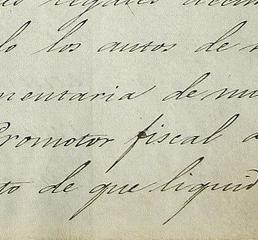 lo los autos de
mentaria de
Promotor fiscal
to de que liquid